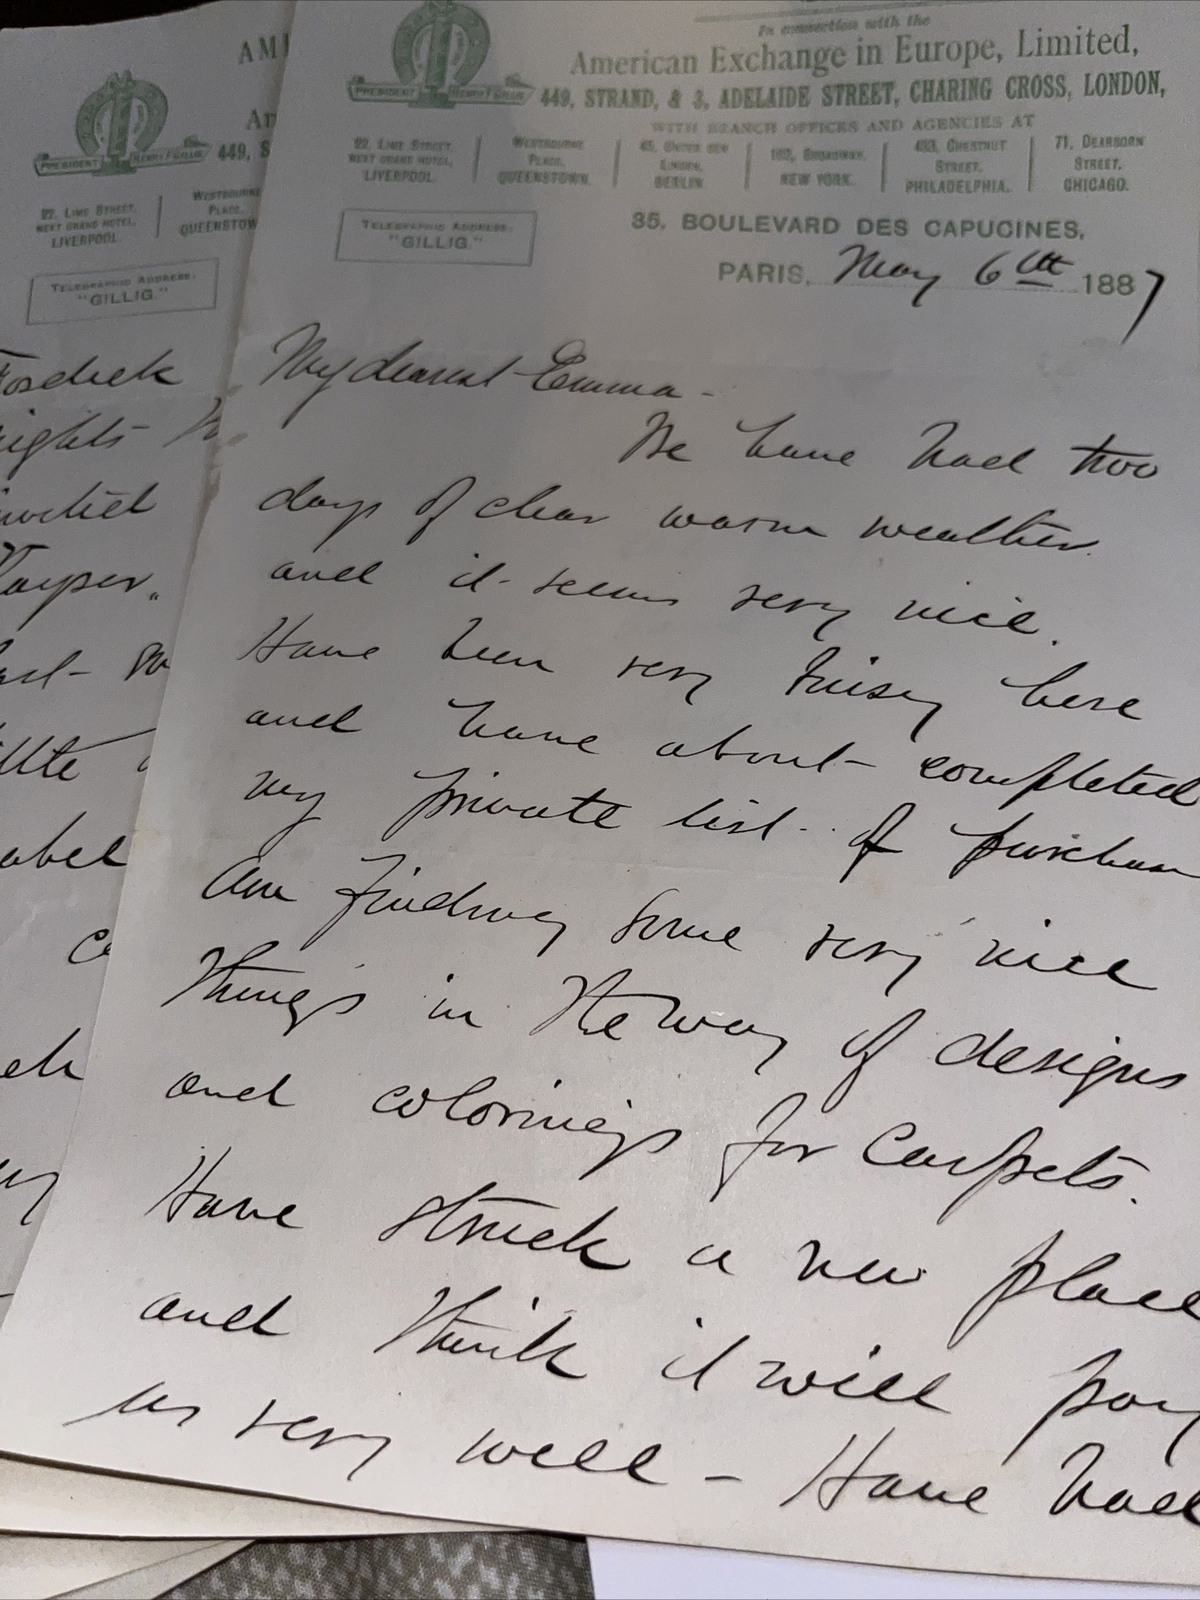 AMI
PRESIDENT HENRY F. GILLIG
449, S
22, LIME STREET,
NEXT GRAND HOTEL,
LIVERPOOL.
WESTBOURNE
PLACE,
QUEENSTOW
TELEGRAPHIC ADDRESS:
"GILLIG."
Fosdick
nights
invited
Harper.
abel
In connection with the
American Exchange in Europe, Limited,
PRESIDENT HENRY F. GILLIG
449, STRAND, & 3, ADELAIDE STREET, CHARING CROSS, LONDON,
WITH BRANCH OFFICES AND AGENCIES AT
22, LIME STREET,
NEXT GRAND HOTEL,
LIVERPOOL.
WESTBOURNE
PLACE,
QUEENSTOWN.
45, UNTER DEN
LINDEN,
BERLIN.
162, BROADWAY,
NEW YORK.
STREET,
PHILADELPHIA.
71, DEARBORN
STREET,
CHICAGO.
TELEGRAPHIC ADDRESS:
"GILLIG."
35, BOULEVARD DES CAPUCINES,
PARIS, May 6th 1887
My dearest Emma -
We have had two
days of clear warm weather.
and it seems very nice.
Have been very busy here
and have about completed
my private list of purchases
am finding some very nice
things in the way of designs
and colorings for carpets.
Have struck a new place
and think it will pay
us very well - Have had